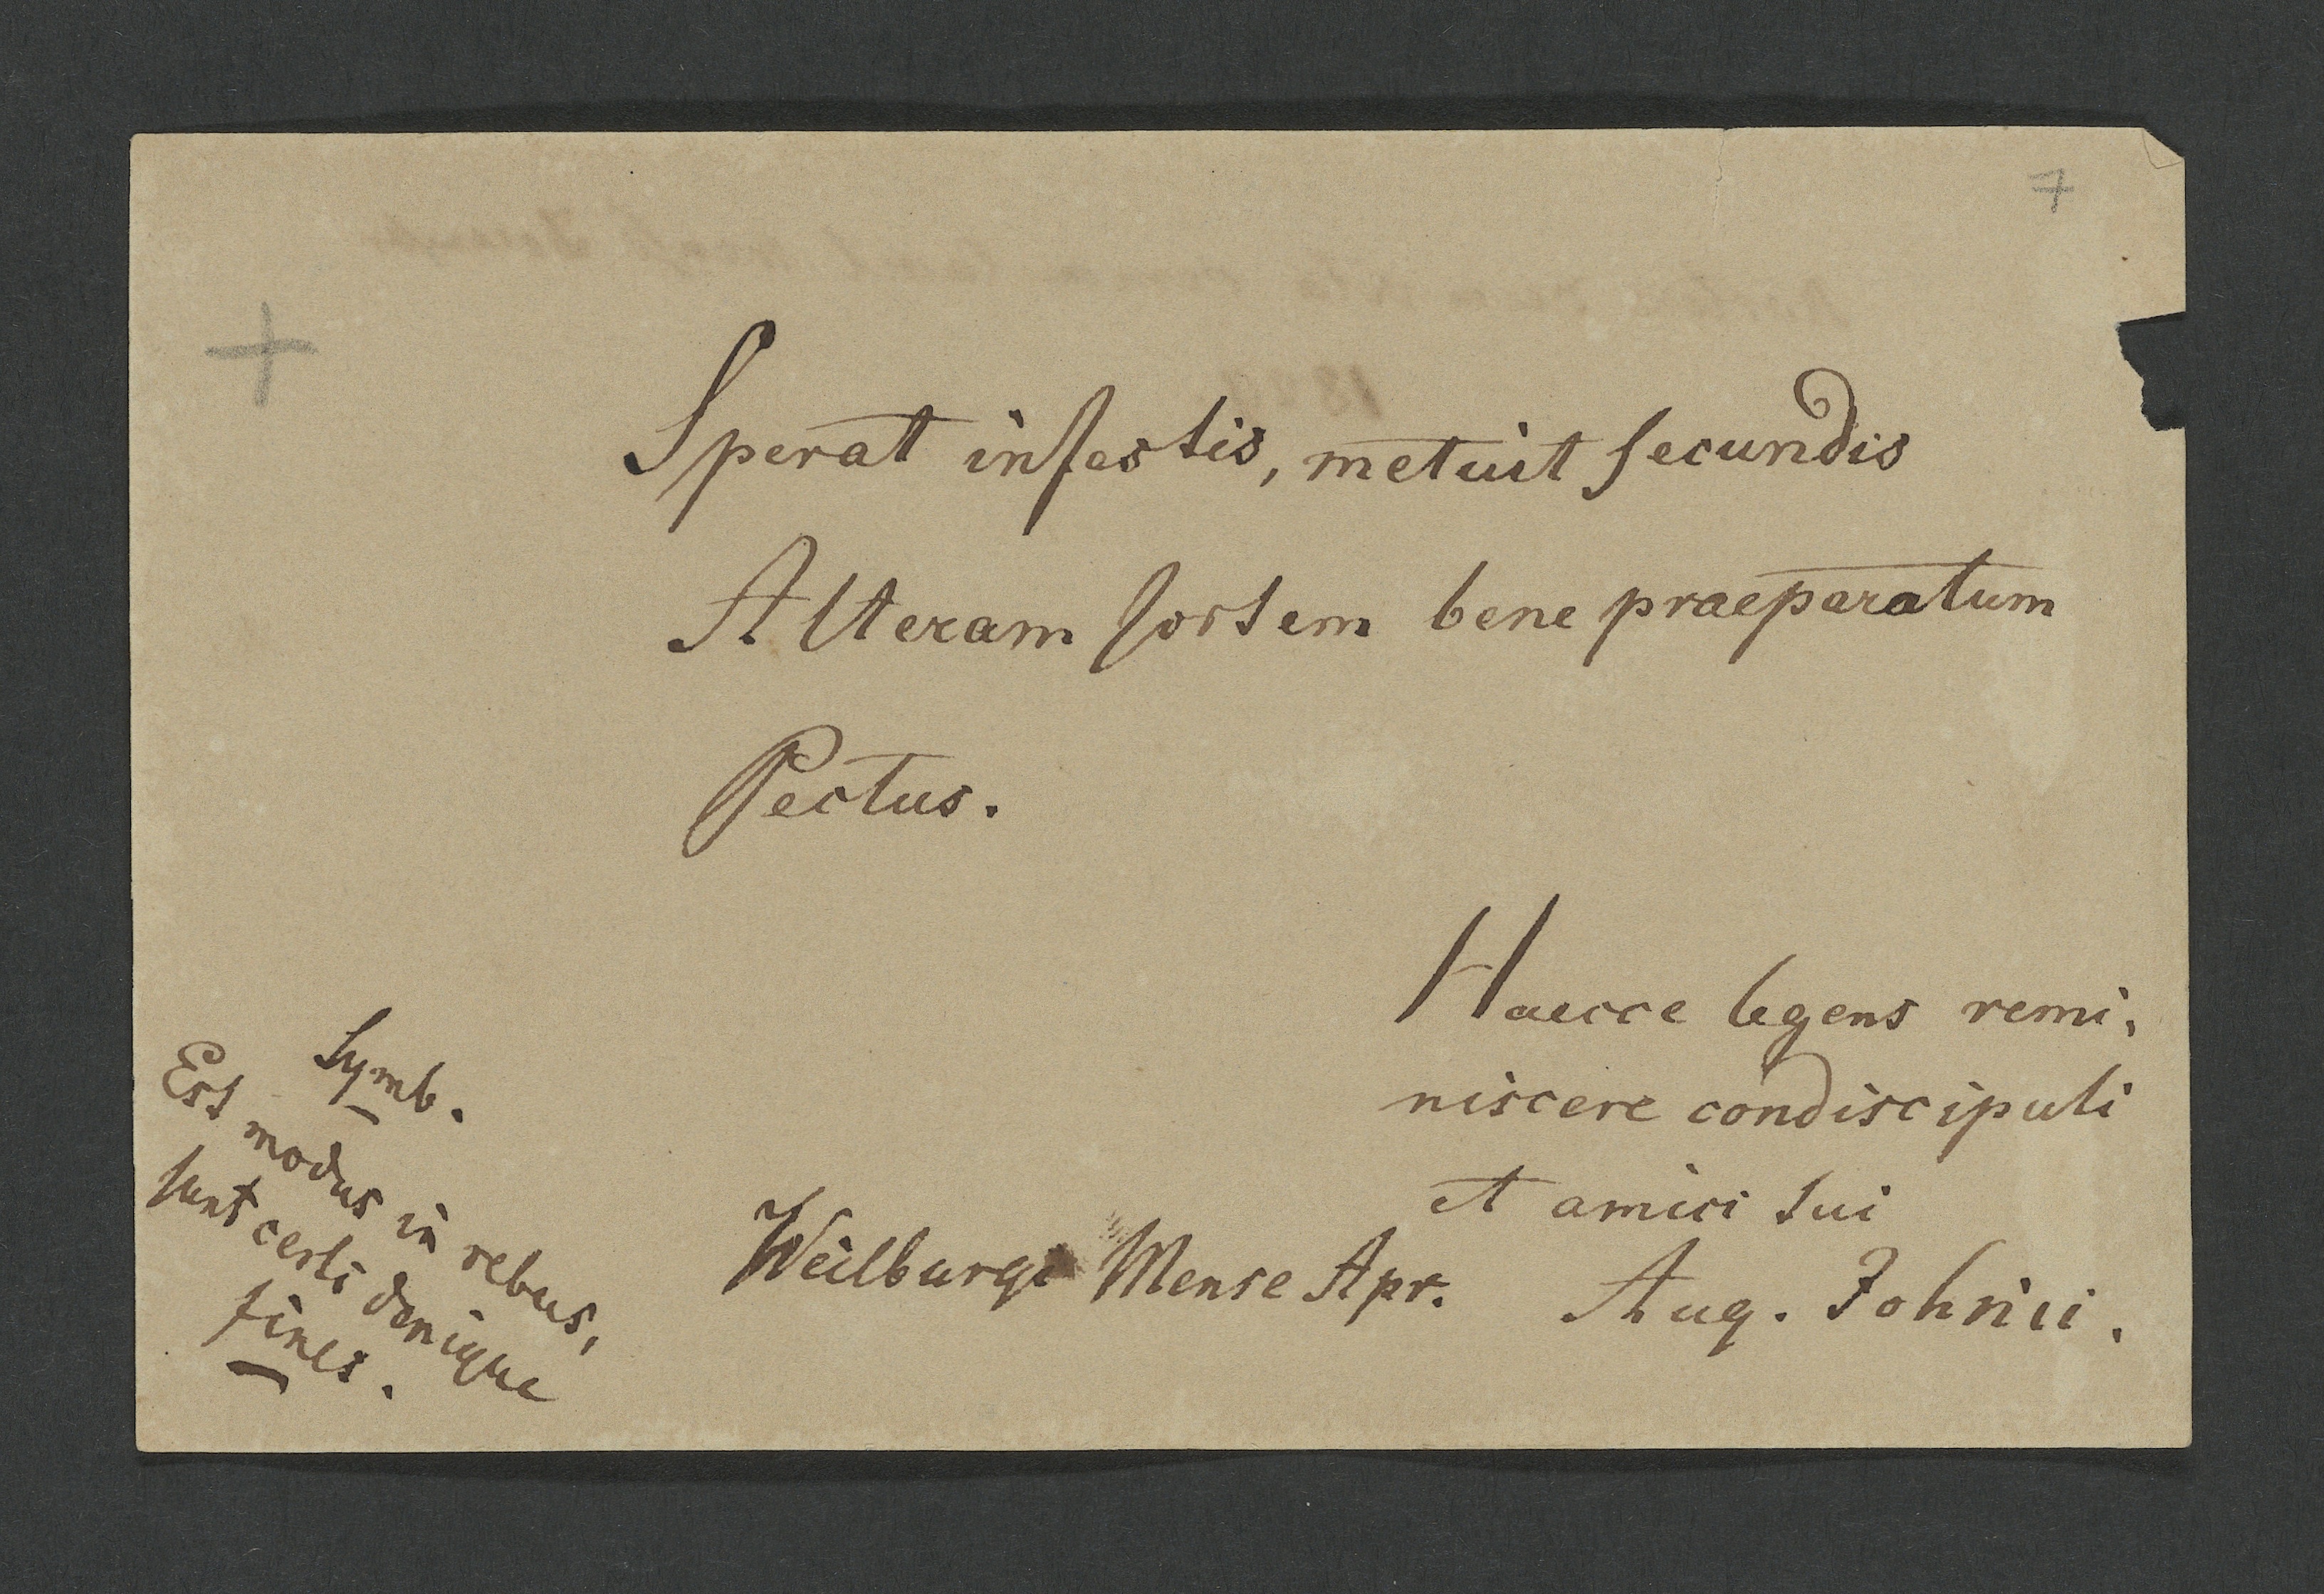 7
+
Sperat infestis, metuit secundis
Alteram sortem bene praeparatum
Pectus.
Haecce legens remi,
niscere condiscipuli
et amici tui
Weilburgi Mense Apr. Aug. Johnii.
Symb.
Est modus in rebus,
sunt certi denique
fines.